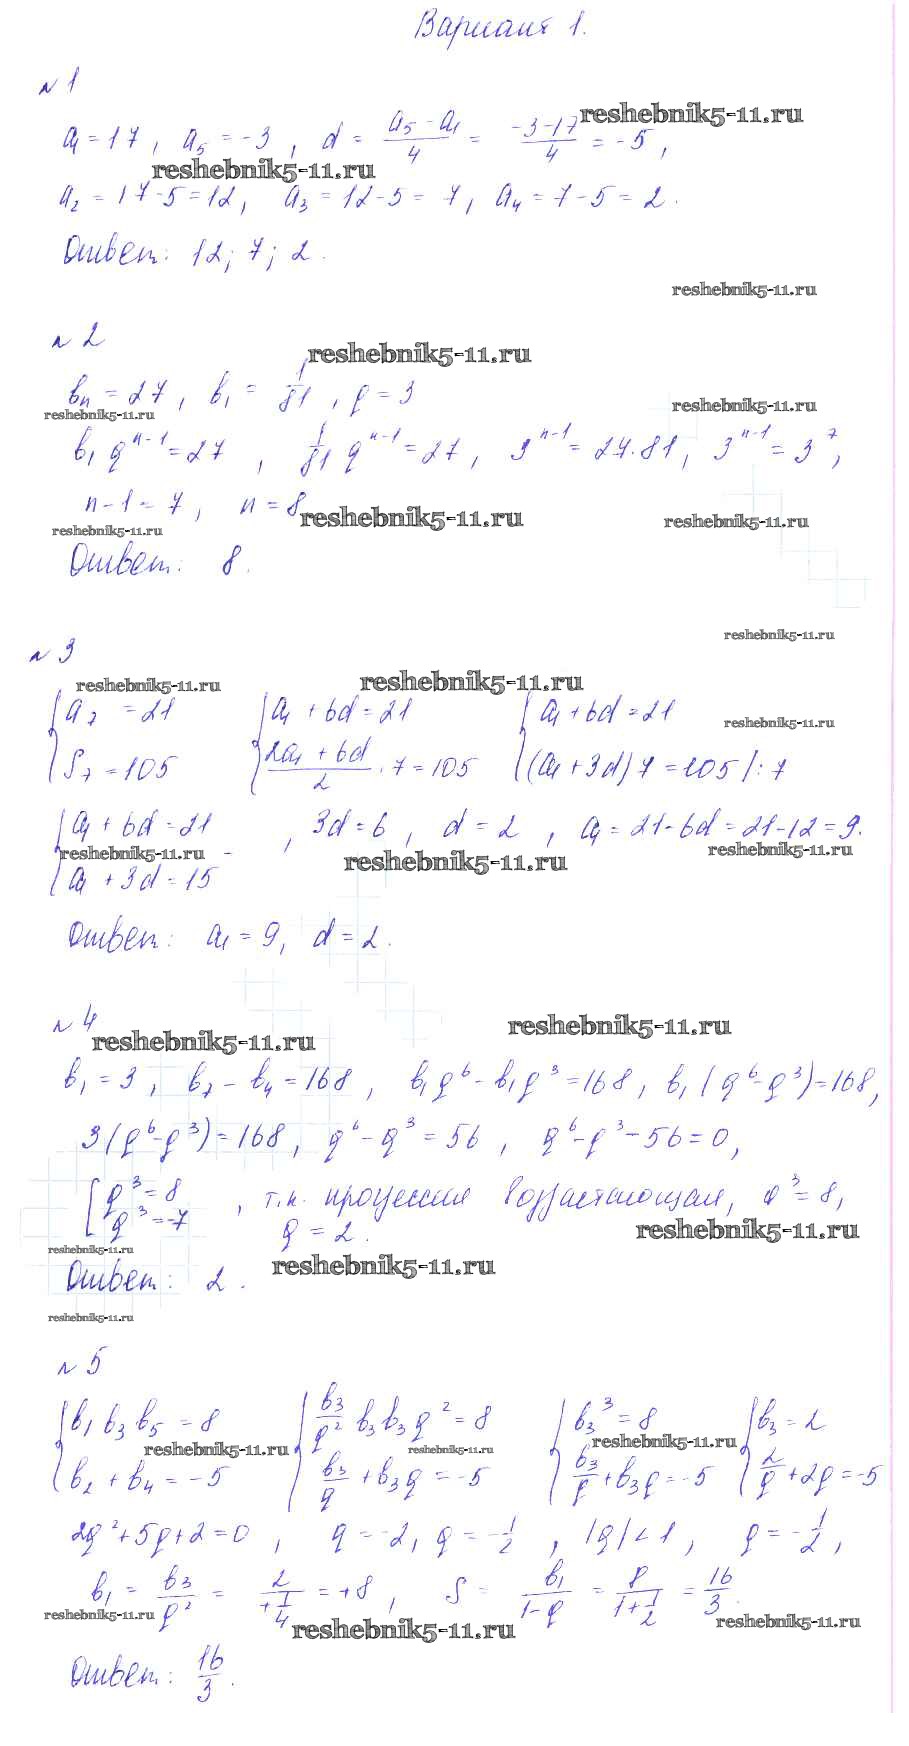 Вариант 1.
№ 1
a₁ = 17, a₅ = -3, d = (a₅ - a₁)/4 = (-3 - 17)/4 = -5,
reshebnik5-11.ru
reshebnik5-11.ru
a₂ = 17 - 5 = 12, a₃ = 12 - 5 = 7, a₄ = 7 - 5 = 2.
Ответ: 12; 7; 2.
reshebnik5-11.ru
№ 2
reshebnik5-11.ru
bₙ = 27, b₁ = 1/81, q = 3
reshebnik5-11.ru reshebnik5-11.ru
b₁qⁿ⁻¹ = 27, 1/81 qⁿ⁻¹ = 27, 3ⁿ⁻¹ = 27·81, 3ⁿ⁻¹ = 3⁷,
n - 1 = 7, n = 8
reshebnik5-11.ru reshebnik5-11.ru reshebnik5-11.ru
Ответ: 8.
reshebnik5-11.ru
№ 3
reshebnik5-11.ru reshebnik5-11.ru
{a₇ = 21 {a₁ + 6d = 21 {a₁ + 6d = 21
reshebnik5-11.ru
S₇ = 105 (2a₁ + 6d)/2 · 7 = 105 (a₁ + 3d)7 = 105 /:7
{a₁ + 6d = 21, 3d = 6, d = 2, a₁ = 21 - 6d = 21 - 12 = 9.
reshebnik5-11.ru - reshebnik5-11.ru reshebnik5-11.ru
a₁ + 3d = 15
Ответ: a₁ = 9, d = 2.
№ 4
reshebnik5-11.ru reshebnik5-11.ru
b₁ = 3, b₇ - b₄ = 168, b₁q⁶ - b₁q³ = 168, b₁(q⁶ - q³) = 168,
3(q⁶ - q³) = 168, q⁶ - q³ = 56, q⁶ - q³ - 56 = 0,
[q³ = 8
q³ = -7, т.к. прогрессия возрастающая, q³ = 8,
q = 2.
reshebnik5-11.ru
reshebnik5-11.ru reshebnik5-11.ru
Ответ: 2.
reshebnik5-11.ru
№ 5
{b₁b₃b₅ = 8 {b₃/q² b₃b₃q² = 8 {b₃³ = 8 {b₃ = 2
reshebnik5-11.ru reshebnik5-11.ru reshebnik5-11.ru
b₂ + b₄ = -5 b₃/q + b₃q = -5 b₃/q + b₃q = -5 2/q + 2q = -5
2q² + 5q + 2 = 0, q = -2, q = -1/2, |q| < 1, q = -1/2,
b₁ = b₃/q² = 2/(+1/4) = +8, S = b₁/(1 - q) = 8/(1 + 1/2) = 16/3.
reshebnik5-11.ru reshebnik5-11.ru reshebnik5-11.ru
Ответ: 16/3.